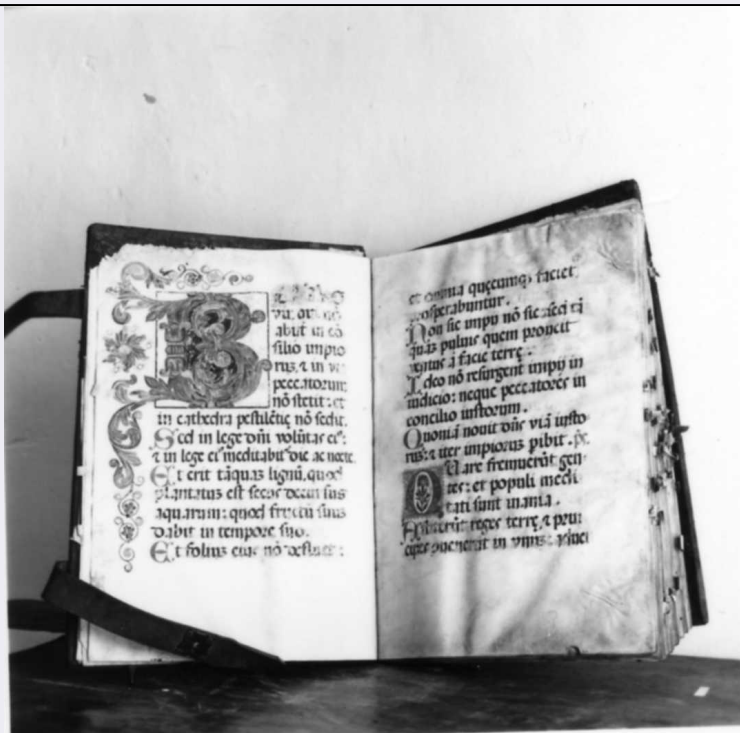 B
vir, qui nõ
abiit in cõ
silio impio
ruʒ, ⁊ in via
peccatorum
nõ stetit: et
in cathedra pestilẽtię nõ sedit.
Sed in lege dñi volũtas eiꝰ:
⁊ in lege eiꝰ meditabit̃ die ac nocte.
Et erit tãquaʒ lignũ, quod
plantatuʒ est secus decursus
aquarum: quod fructũ suuʒ
dabit in tempore suo.
Et foliuʒ eius nõ defluet:
et omnia quęcumqʒ faciet
prosperabuntur.
Non sic impij nõ sic: sed tã
quaʒ puluis quem proiicit
ventus a facie terrę.
Ideo nõ resurgent impij in
iudicio: neque peccatores in
concilio iustorum.
Quoniã nouit dñs viã iusto
ruʒ: ⁊ iter impioruʒ pibit. ps.
Quare fremuerũt gen
tes: et populi medi
tati sunt inania.
Astiterũt reges terrę ⁊ prin
cipes conuenerũt in vnuʒ: aduer